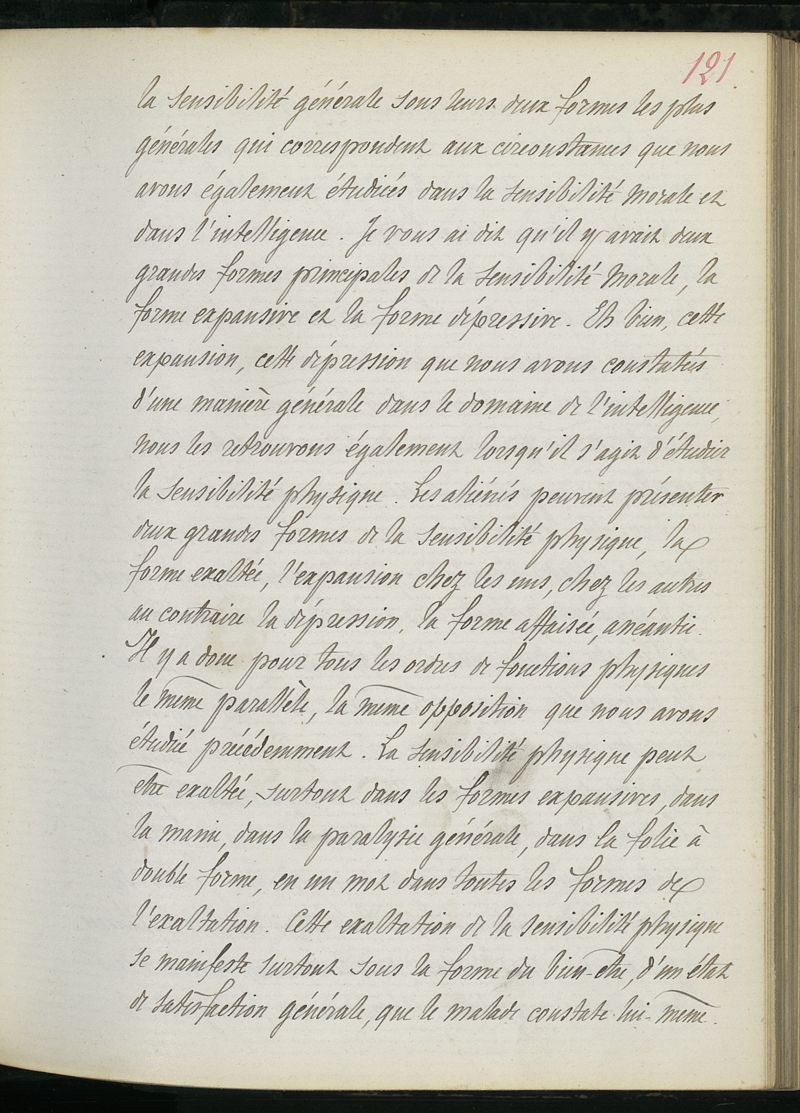 121.
la sensibilité générale sous leurs deux formes les plus
générales qui correspondent aux circonstances que nous
avons également étudiées dans la sensibilité morale et
dans l'intelligence. Je vous ai dit qu'il y avait deux
grandes formes principales de la sensibilité morale, la
forme expansive et la forme dépressive. Eh bien, cette
expansion, cette dépression que nous avons constatées
d'une manière générale dans le domaine de l'intelligence,
nous les retrouvons également lorsqu'il s'agit d'étudier
la sensibilité physique. Les aliénés peuvent présenter
deux grandes formes de la sensibilité physique, la
forme exaltée, l'expansion chez les uns, chez les autres
au contraire la dépression, la forme affaisée, anéantie.
Il y a donc pour tous les ordres de fonctions physiques
le même parallèle, la même opposition que nous avons
étudié précédemment. La sensibilité physique peut
être exaltée, surtout dans les formes expansives, dans
la manie, dans la paralysie générale, dans la folie à
double forme, en un mot dans toutes les formes de
l'exaltation. Cette exaltation de la sensibilité physique
se manifeste surtout sous la forme du bien-être, d'un état
de satisfaction générale, que le malade constate lui-même.